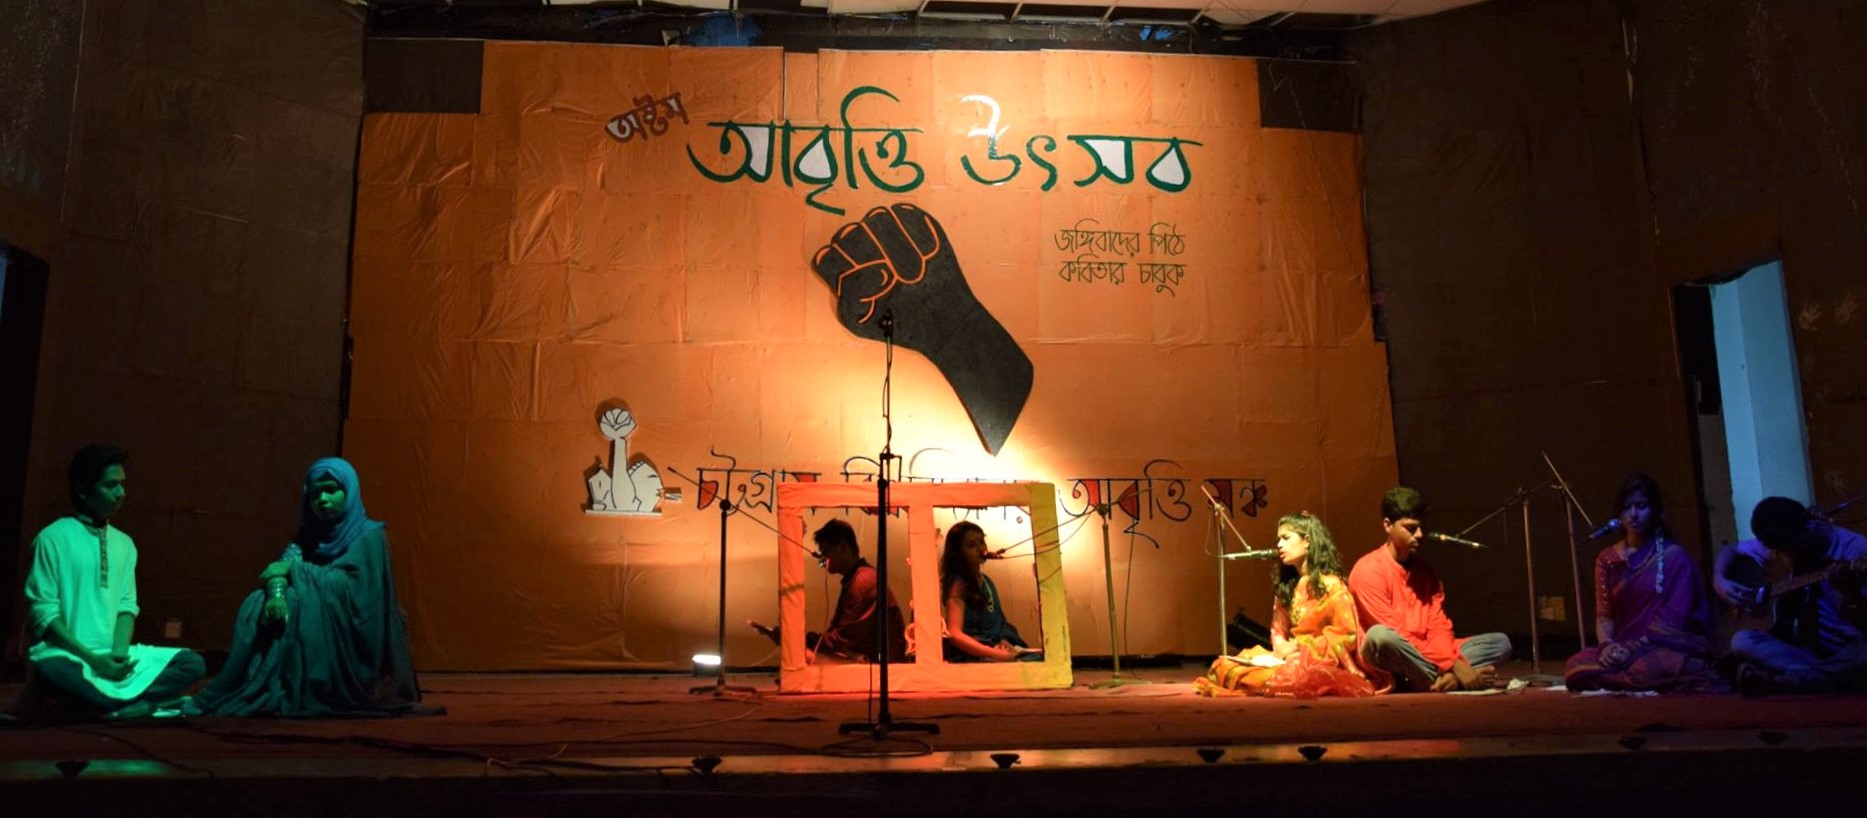 অষ্টম
আবৃত্তি উৎসব
জঙ্গিবাদের পিঠে
কবিতার চাবুক
চট্টগ্রাম আবৃত্তি মঞ্চ